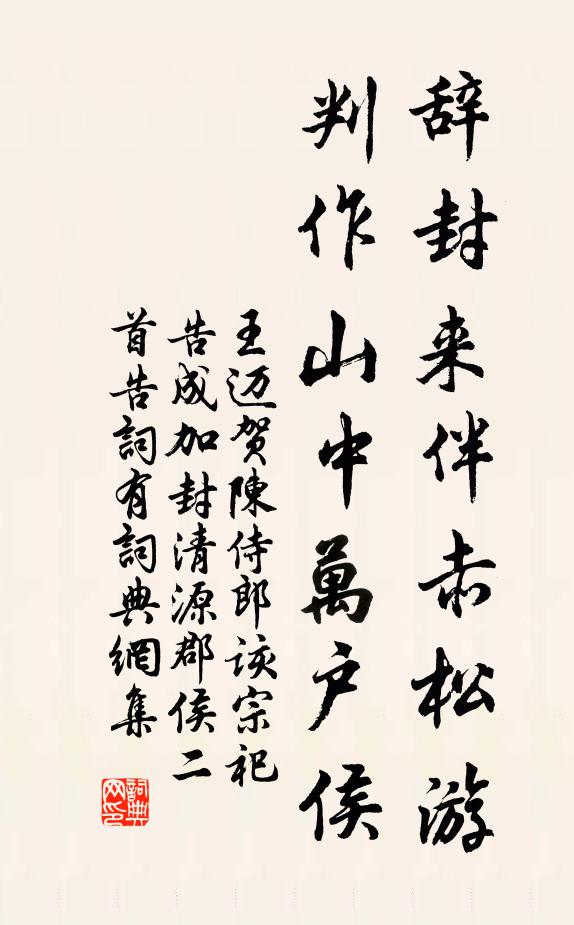 辞封来伴赤松游
判作山中萬户侯
王迈贺陳侍郎該宗祀
告成加封清源郡侯二
首告詞有詞典網集
詞典网印